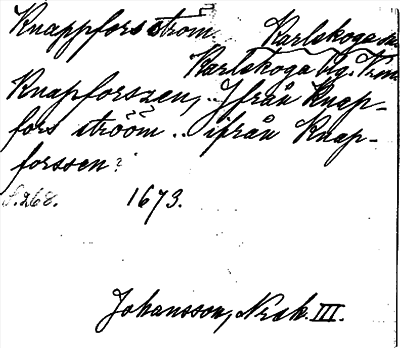 Knappfors ström. Karlskoga sn.
Karlskoga bg. Vrml
Knapforszen, .. Ifrån Knap-
fors strööm .. ifrån Knap-
forssen?
S. 268. 1673.
Johansson, Norsk. III.